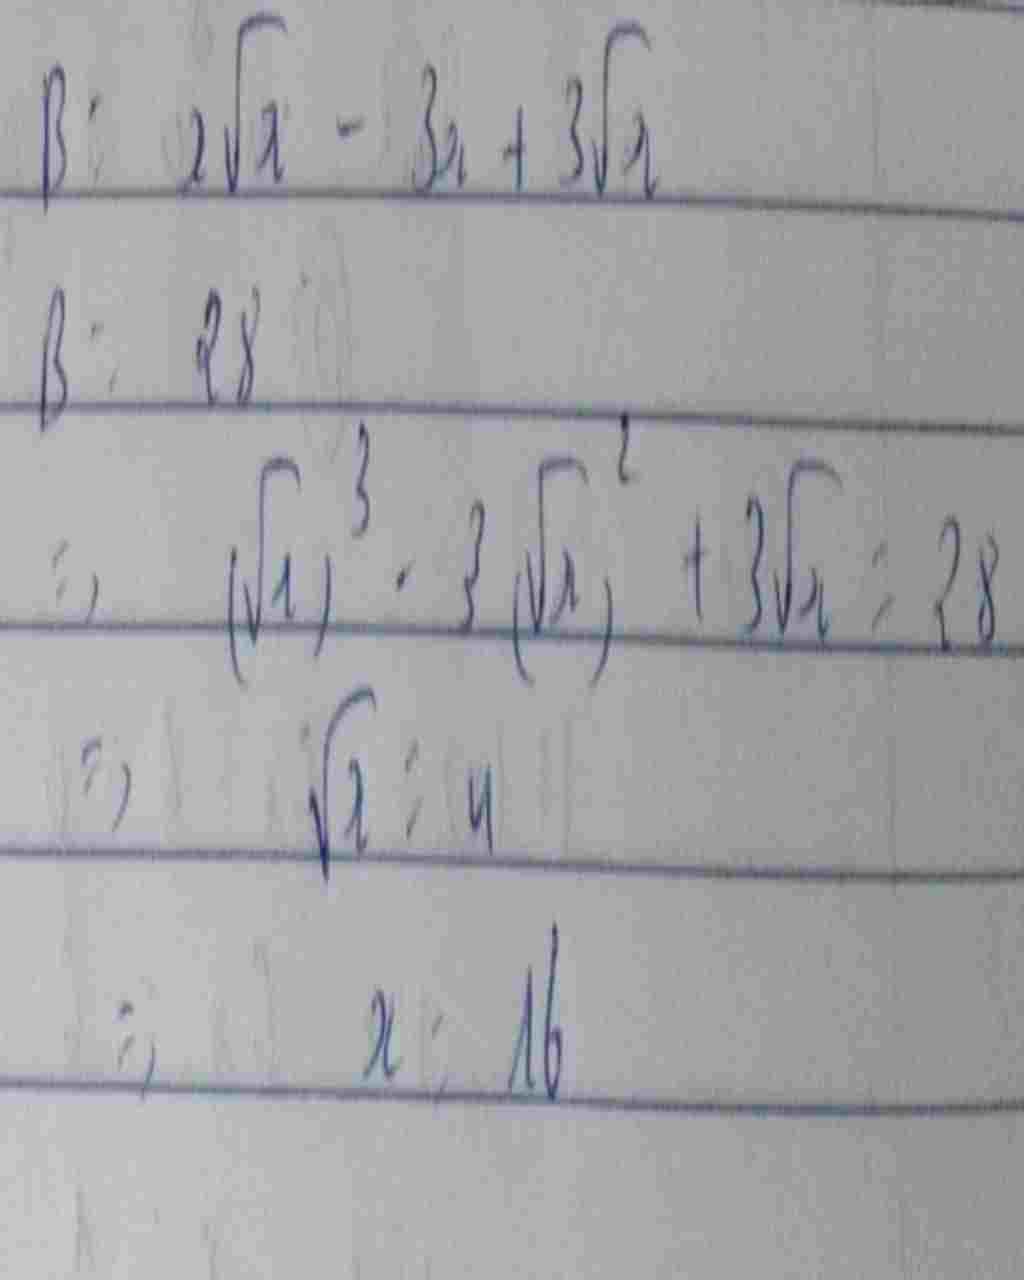 B = x√x - 3x + 3√x
B = 28
=> (√x)³ - 3(√x)² + 3√x = 28
=> √x = 4
=> x = 16